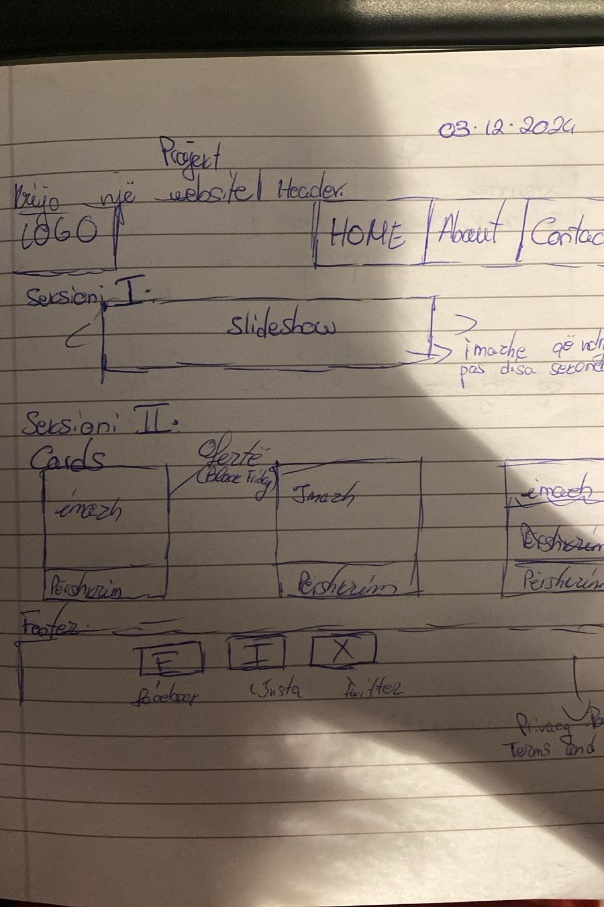 03.12.2024
Projekt
Krijo një website | Header.
LOGO
HOME
About
Contac
Seksioni I.
Slideshow
imazhe që ndr
pas disa sekond
Seksioni II.
Cards
Ofertë
(Black Friday)
imazh
Imazh
imazh
Përshkrim
Përshkrim
Përshkrim
Përshkrim
Footer.
F
I
X
facebook
Insta
Twitter
Privacy Po
Terms and